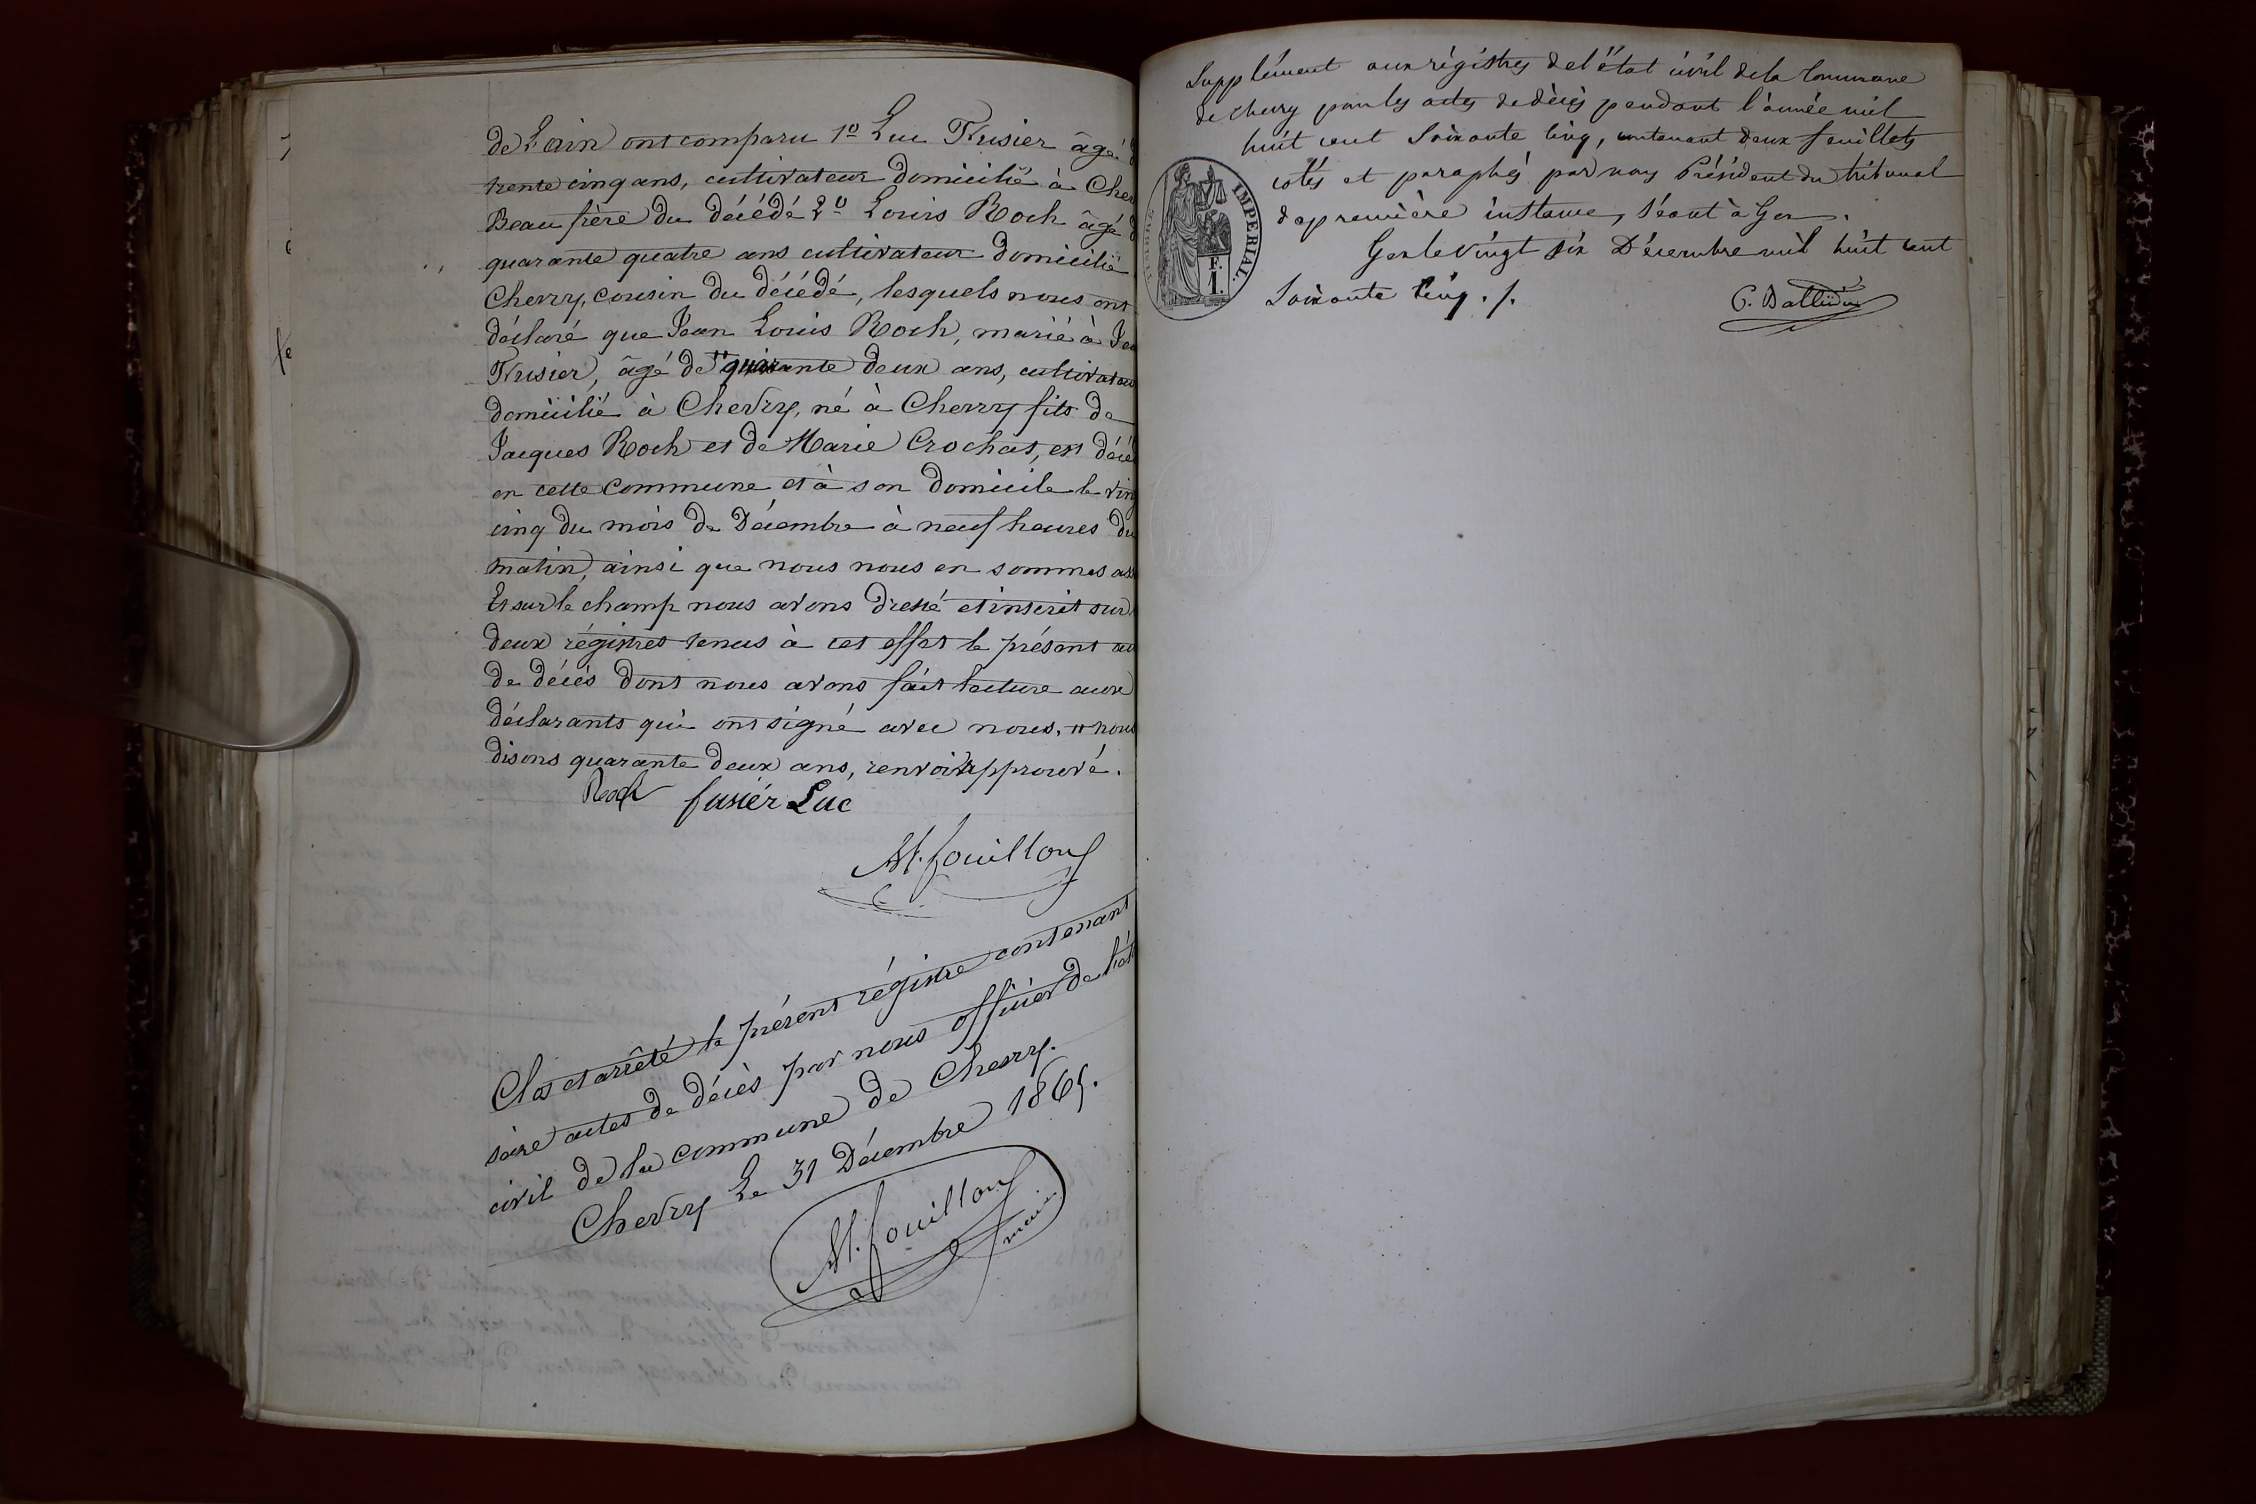 de L'ain ont comparu 1º Luc Fusier âgé d
trente cinq ans, cultivateur domicilié à Chev
Beau frère du décédé 2º Louis Roch âgé d
quarante quatre ans cultivateur domicilié
Chevry, cousin du décédé, lesquels nous ont
déclaré que Jean Louis Roch, marié à Je
Fusier, âgé de quarante deux ans, cultivateu
domicilié à Chevry, né à Chevry fils de
Jacques Roch et de Marie Crochat, est décé
en cette commune et à son domicile le vin
cinq du mois de Décembre à neuf heures du
matin, ainsi que nous nous en sommes as
Et sur le champ nous avons dressé et inscrit sur
deux régistres tenus à cet effet le présent ac
de décès dont nous avons fait lecture aux
déclarants qui ont signé avec nous, # nous
disons quarante deux ans, renvoi approuvé.
Roch fusiér Luc
M. fouilloux
Clos et arrêté le présent régistre contenant
seize actes de décès par nous officier de l'ét
civil de la commune de Chevry.
Chevry Le 31 Décembre 1865.
M. fouilloux
maire
Supplément aux régistres de l'état civil de la Commune
de Chevry pour les actes de décès pendant l'année mil
huit cent Soixante cinq, contenant deux feuillets
cotés et paraphés par nous Président du tribunal
de première instance, séant à Gex.
Gex le vingt six Décembre mil huit cent
Soixante cinq ./.
IMPERIAL.
F.
1.